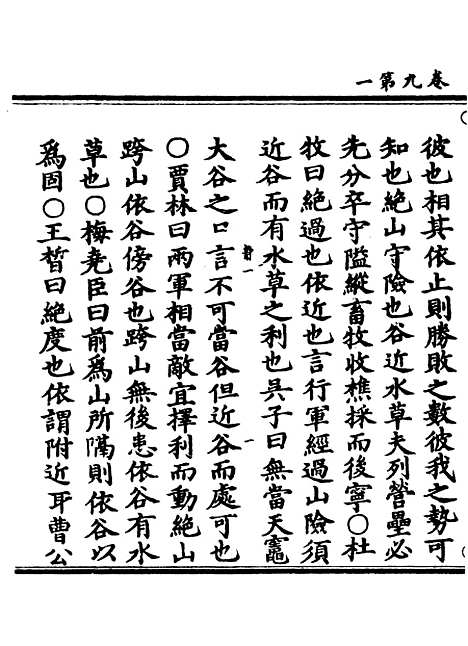 卷九第一
彼也相其依止則勝敗之數彼我之勢可
知也絶山守險也谷近水草夫列營壘必
先分卒守隘縱畜牧收樵採而後寧〇杜
牧曰絶過也依近也言行軍經過山險須
近谷而有水草之利也吳子曰無當天竈
大谷之口言不可當谷但近谷而處可也
〇賈林曰兩軍相當敵宜擇利而動絶山
跨山依谷傍谷也跨山無後患依谷有水
草也〇梅堯臣曰前爲山所隔則依谷以
爲固〇王晳曰絶度也依謂附近耳曹公